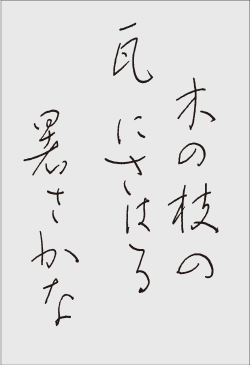 木の枝の
瓦にさはる
暑さかな